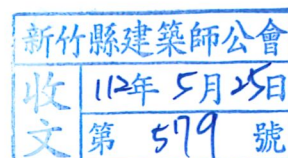 新竹縣建築師公會
收文
112年5月25日
第579號